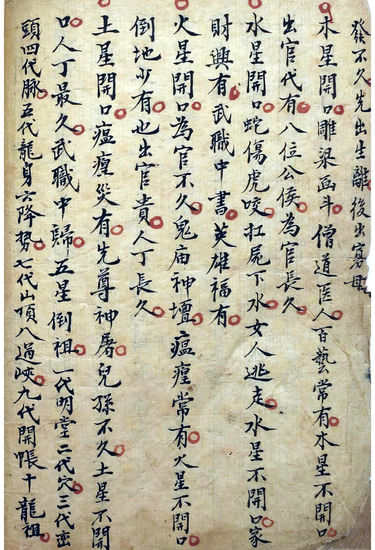 發不久先出生離後出寡母
木星開口雕梁画斗僧道医人百藝常有木星不開口
出官代有八位公侯為官長久
水星開口蛇傷虎咬扛屍下水女人逃走水星不開口家
財興有武職中書英雄福有
火星開口為官不久鬼廟神壇瘟癀常有火星不開口
倒地少有也出官貴人丁長久
土星開口瘟癀災有先尊神屠兒孫不久土星不開
口人丁最久武職中歸五星倒祖一代明堂二代穴三代巒
頭四代脉五代龍身六降勢七代山頂八過峽九代開帳十龍祖